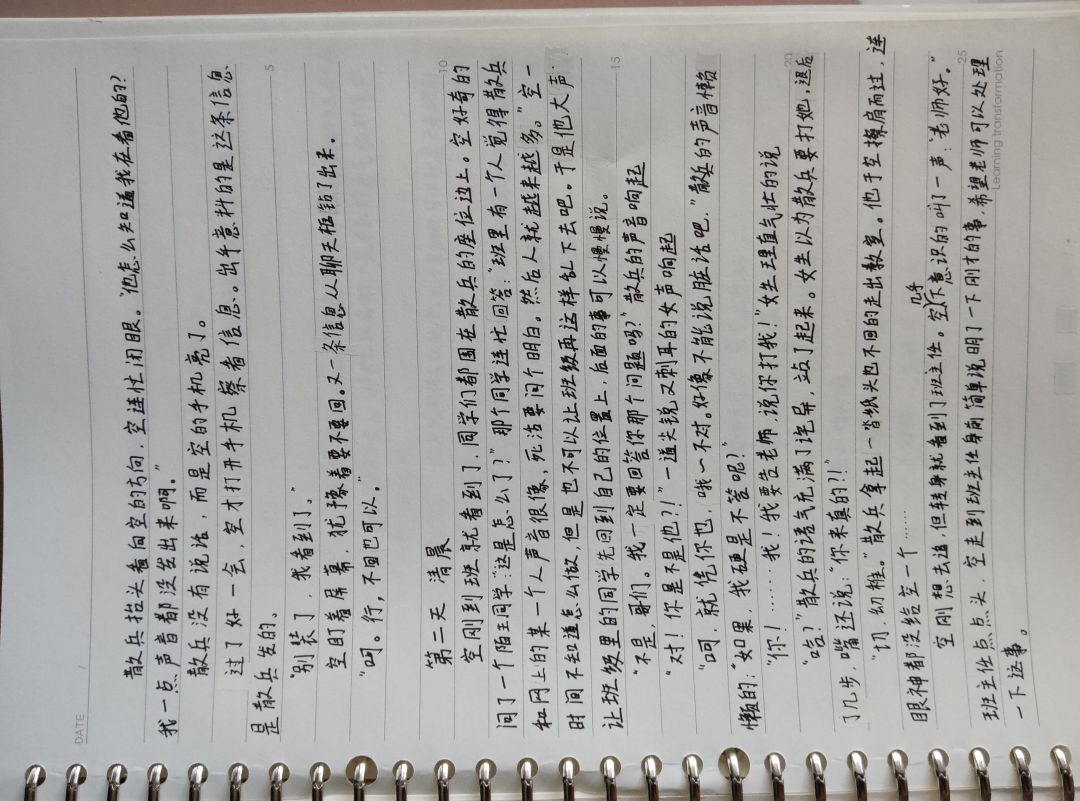 DATE
散兵抬头看向空的方向，空连忙闭眼。“他怎么知道我在看他的？
我一点声音都没发出来啊。”
散兵没有说话，而是空的手机亮了。
过了好一会，空才打开手机察看信息。出乎意料的是这条信息
是散兵发的。
“别装了，我看到了。”
空盯着屏幕，犹豫着要不要回。又一条信息从聊天框钻了出来。
“呵。行，不回也可以。”
第二天 清晨
空刚到班就看到了，同学们都围在散兵的座位边上。空好奇的
问了一个陌生同学：“这是怎么了？”那个同学连忙回答：“班里有一个人觉得散兵
和网上的某一个人声音很像，死活要问个明白。然后人就越来越多。”空一
时间不知道怎么做，但是也不可以让班级再这样乱下去吧。于是他大声：
让班级里的同学先回到自己的位置上，后面的事可以慢慢说。
“不是，哥们。我一定要回答你那个问题吗？”散兵的声音响起
“对！你是不是他？！”一道尖锐又刺耳的女声响起
“呵，就凭你也，哦～不对。好像不能说脏话吧，”散兵的声音懒
懒的：“如果，我硬是不答呢？”
“你！……我！我要告老师，说你打我！”女生理直气壮的说
“哈？”散兵的语气充满了诧异，站了起来。女生以为散兵要打她，退后
了几步，嘴还说：“你来真的？！”
“切，幼稚。”散兵拿起一沓纸头也不回的走出教室。他于空擦肩而过，连
眼神都没给空一个……
空刚想去追，但转身就看到了班主任。空几乎下意识的叫了一声：“老师好。”
班主任点点头，空走到班主任身前简单说明了一下刚才的事，希望老师可以处理
一下这事。
5
10
15
20
25
Learning transformation